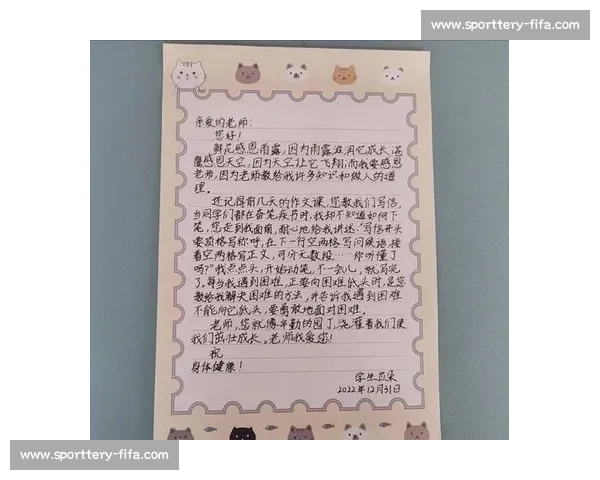 www.sporttery-fifa.com
亲爱的老师:
您好!
鲜花感恩雨露,因为雨露滋润它成长;苍
鹰感恩天空,因为天空让它飞翔;而我要感恩
老师,因为老师教给我许多知识和做人的道
理。
还记得前几天的作文课,您教我们写信,
当同学们都在奋笔疾书时,我却不知道如何下
笔,您走到我面前,耐心地给我讲述:“写信开头
要顶格写称呼,在下一行空两格写问候语,接
着空两格写正文,可分无数段……你听懂了
吗?”我点点头,开始动笔,不一会儿,就写完
了。每当我遇到困难,正要向困难低头时,是您
教给我解决困难的方法,并告诉我遇到困难
不能向它低头,要勇敢地面对困难。
老师,您就像辛勤的园丁,浇灌着我们使
我们茁壮成长。老师我爱您!
祝
身体健康!
学生
2022年12月31日
www.sporttery-fifa.com